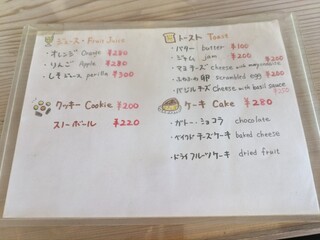 ジュース・Fruit Juice
・オレンジ Orange ¥280
・りんご Apple ¥280
・しそジュース perilla ¥300
クッキー Cookie ¥200
スノーボール ¥220
トースト Toast
・バター butter ¥100
・ジャム jam ¥200
・マヨチーズ cheese with mayonnaise ¥200
・ふわふわ卵 scrambled egg ¥280
・バジルチーズ cheese with basil sauce ¥250
ケーキ Cake ¥280
・ガトーショコラ chocolate
・ベイクドチーズケーキ baked cheese
・ドライフルーツケーキ dried fruit